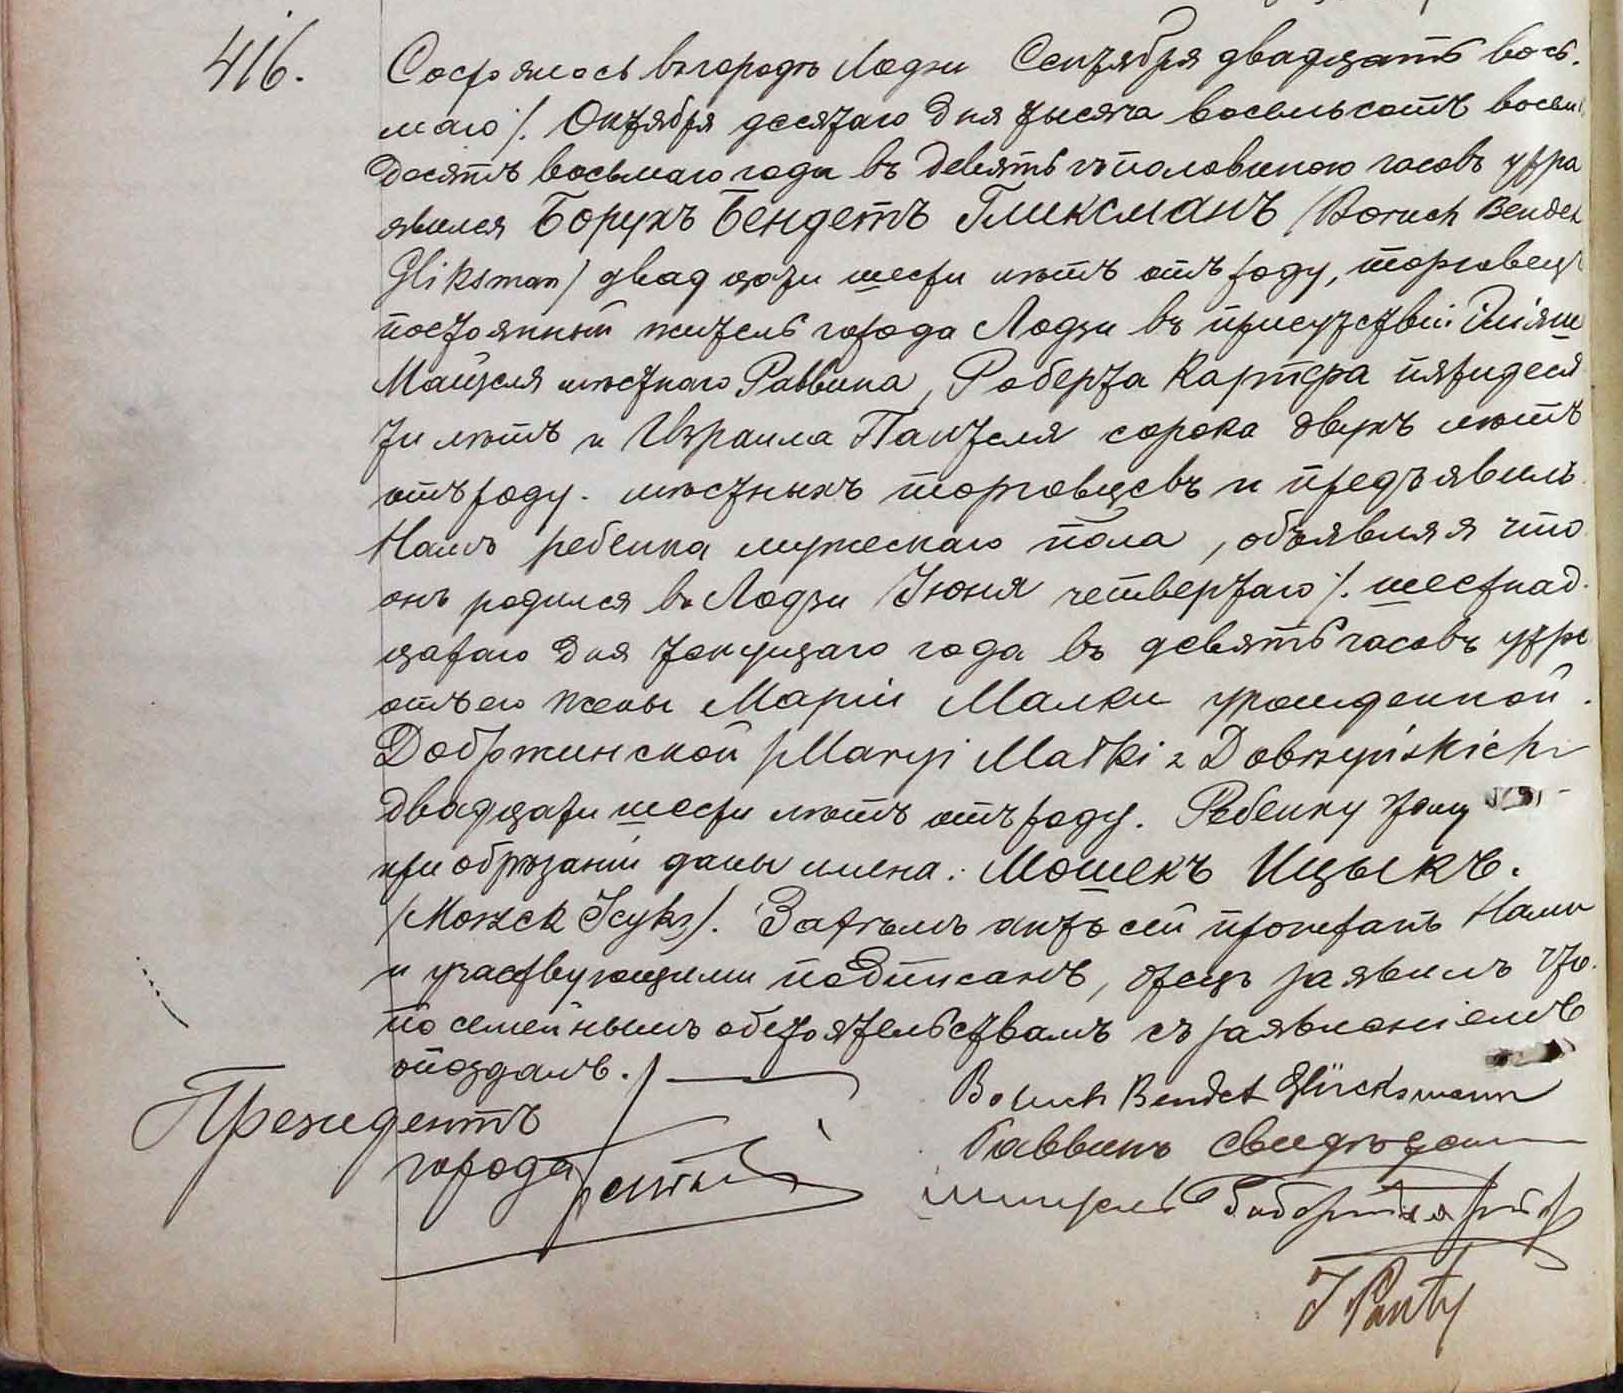 416.
Состоялось въ городѣ Лодзи Сентября двадцать вось-
маго /. Октября десятаго дня тысяча восемьсотъ восемь
десятъ восьмаго года въ девять съ половиною часовъ утра
явился Борухъ Бендетъ Гликсманъ /Boruch Bendet
Gliksman/ двадцати шести лѣтъ отъ роду, торговецъ
постоянный житель города Лодзи въ присутствіи Иліяша
Майзеля мѣстнаго Раввина, Роберта Картера пятидеся
ти лѣтъ и Израила Панзеля сорока двухъ лѣтъ
отъ роду. мѣстныхъ торговцевъ и предъявилъ
Намъ ребенка мужескаго пола, объявляя что
онъ родился въ Лодзи Іюня четвертаго /. шестнад-
цатаго дня текущаго года въ девять часовъ утра
отъ его жены Маріи Малки урожденной
Добржинской /Maryi Małki z Dobrzyńskich
двадцати шести лѣтъ отъ роду. Ребенку тому
при обрѣзаніи даны имена: Мошекъ Ицыкъ.
/Moszek Icyk/. Затѣмъ актъ сей прочитанъ Нами
и участвующими подписанъ, отецъ заявилъ что
по семейнымъ обстоятельствамъ съ заявленіемъ
опоздалъ. /
Президентъ
города
Boruch Bendet Glücksmann
Раввинъ